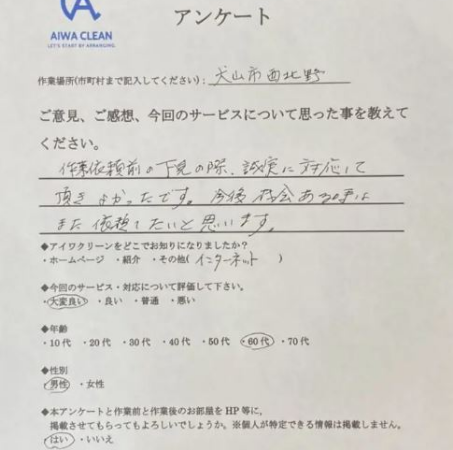 AIWA CLEAN
LET'S START BY ARRANGING.
アンケート
作業場所(市町村まで記入してください)：犬山市西北野
ご意見、ご感想、今回のサービスについて思った事を教えて
ください。
作業依頼前の下見の際、誠実に対応して
頂きよかったです。今後機会ある時は
また依頼したいと思います。
◆アイワクリーンをどこでお知りになりましたか？
・ホームページ ・紹介 ・その他(インターネット )
◆今回のサービス・対応について評価して下さい。
・大変良い ・良い ・普通 ・悪い
◆年齢
・10代 ・20代 ・30代 ・40代 ・50代 ・60代 ・70代
◆性別
・男性 ・女性
◆本アンケートと作業前と作業後のお部屋をHP等に、
掲載させてもらってもよろしいでしょうか。※個人が特定できる情報は掲載しません。
・はい ・いいえ